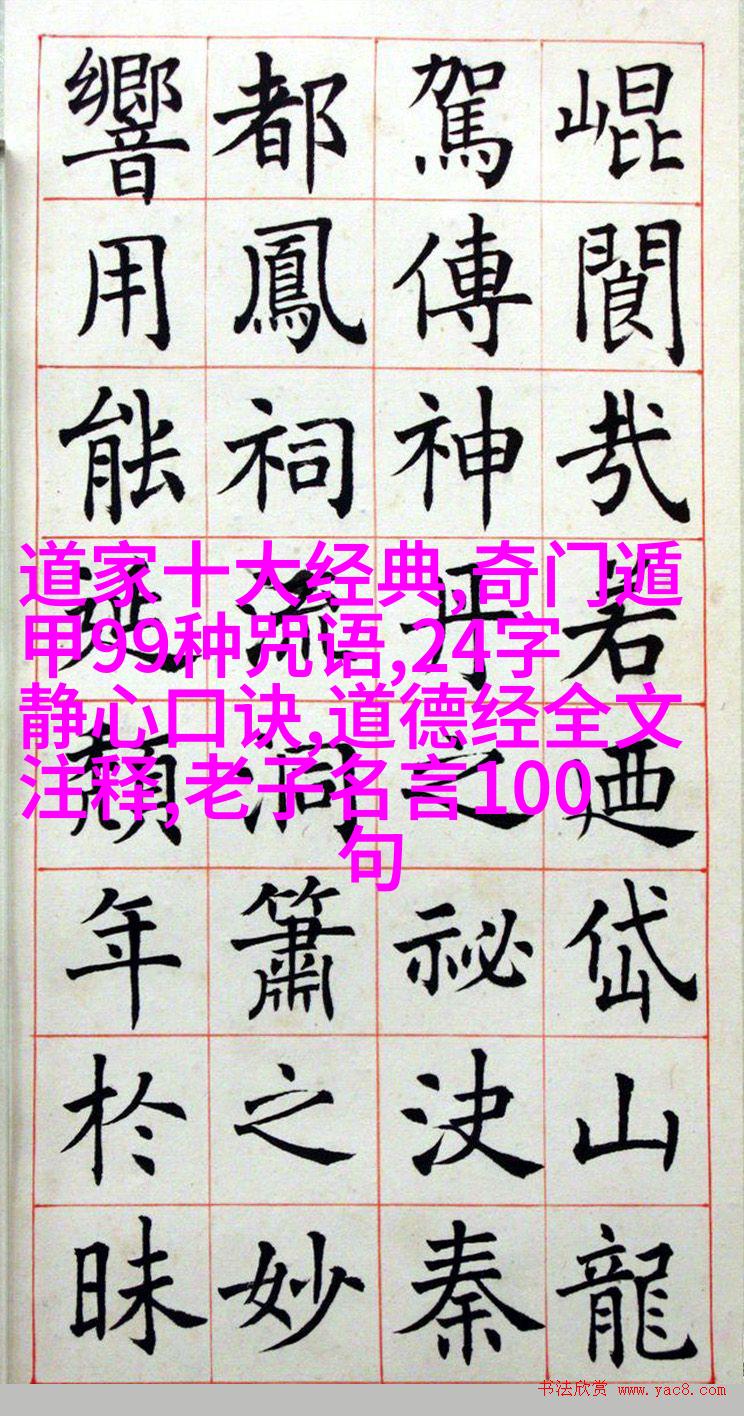 崐閬哉若迺岱山龍
駕傳神丹之祕決秦
都鳳祠流洞簫之妙
響用能延頹年於昧
道家十大经典,奇门遁
甲99种咒语,24字
静心口诀,道德经全文
注释,老子名言100
句
书法欣赏 www.yac8.com